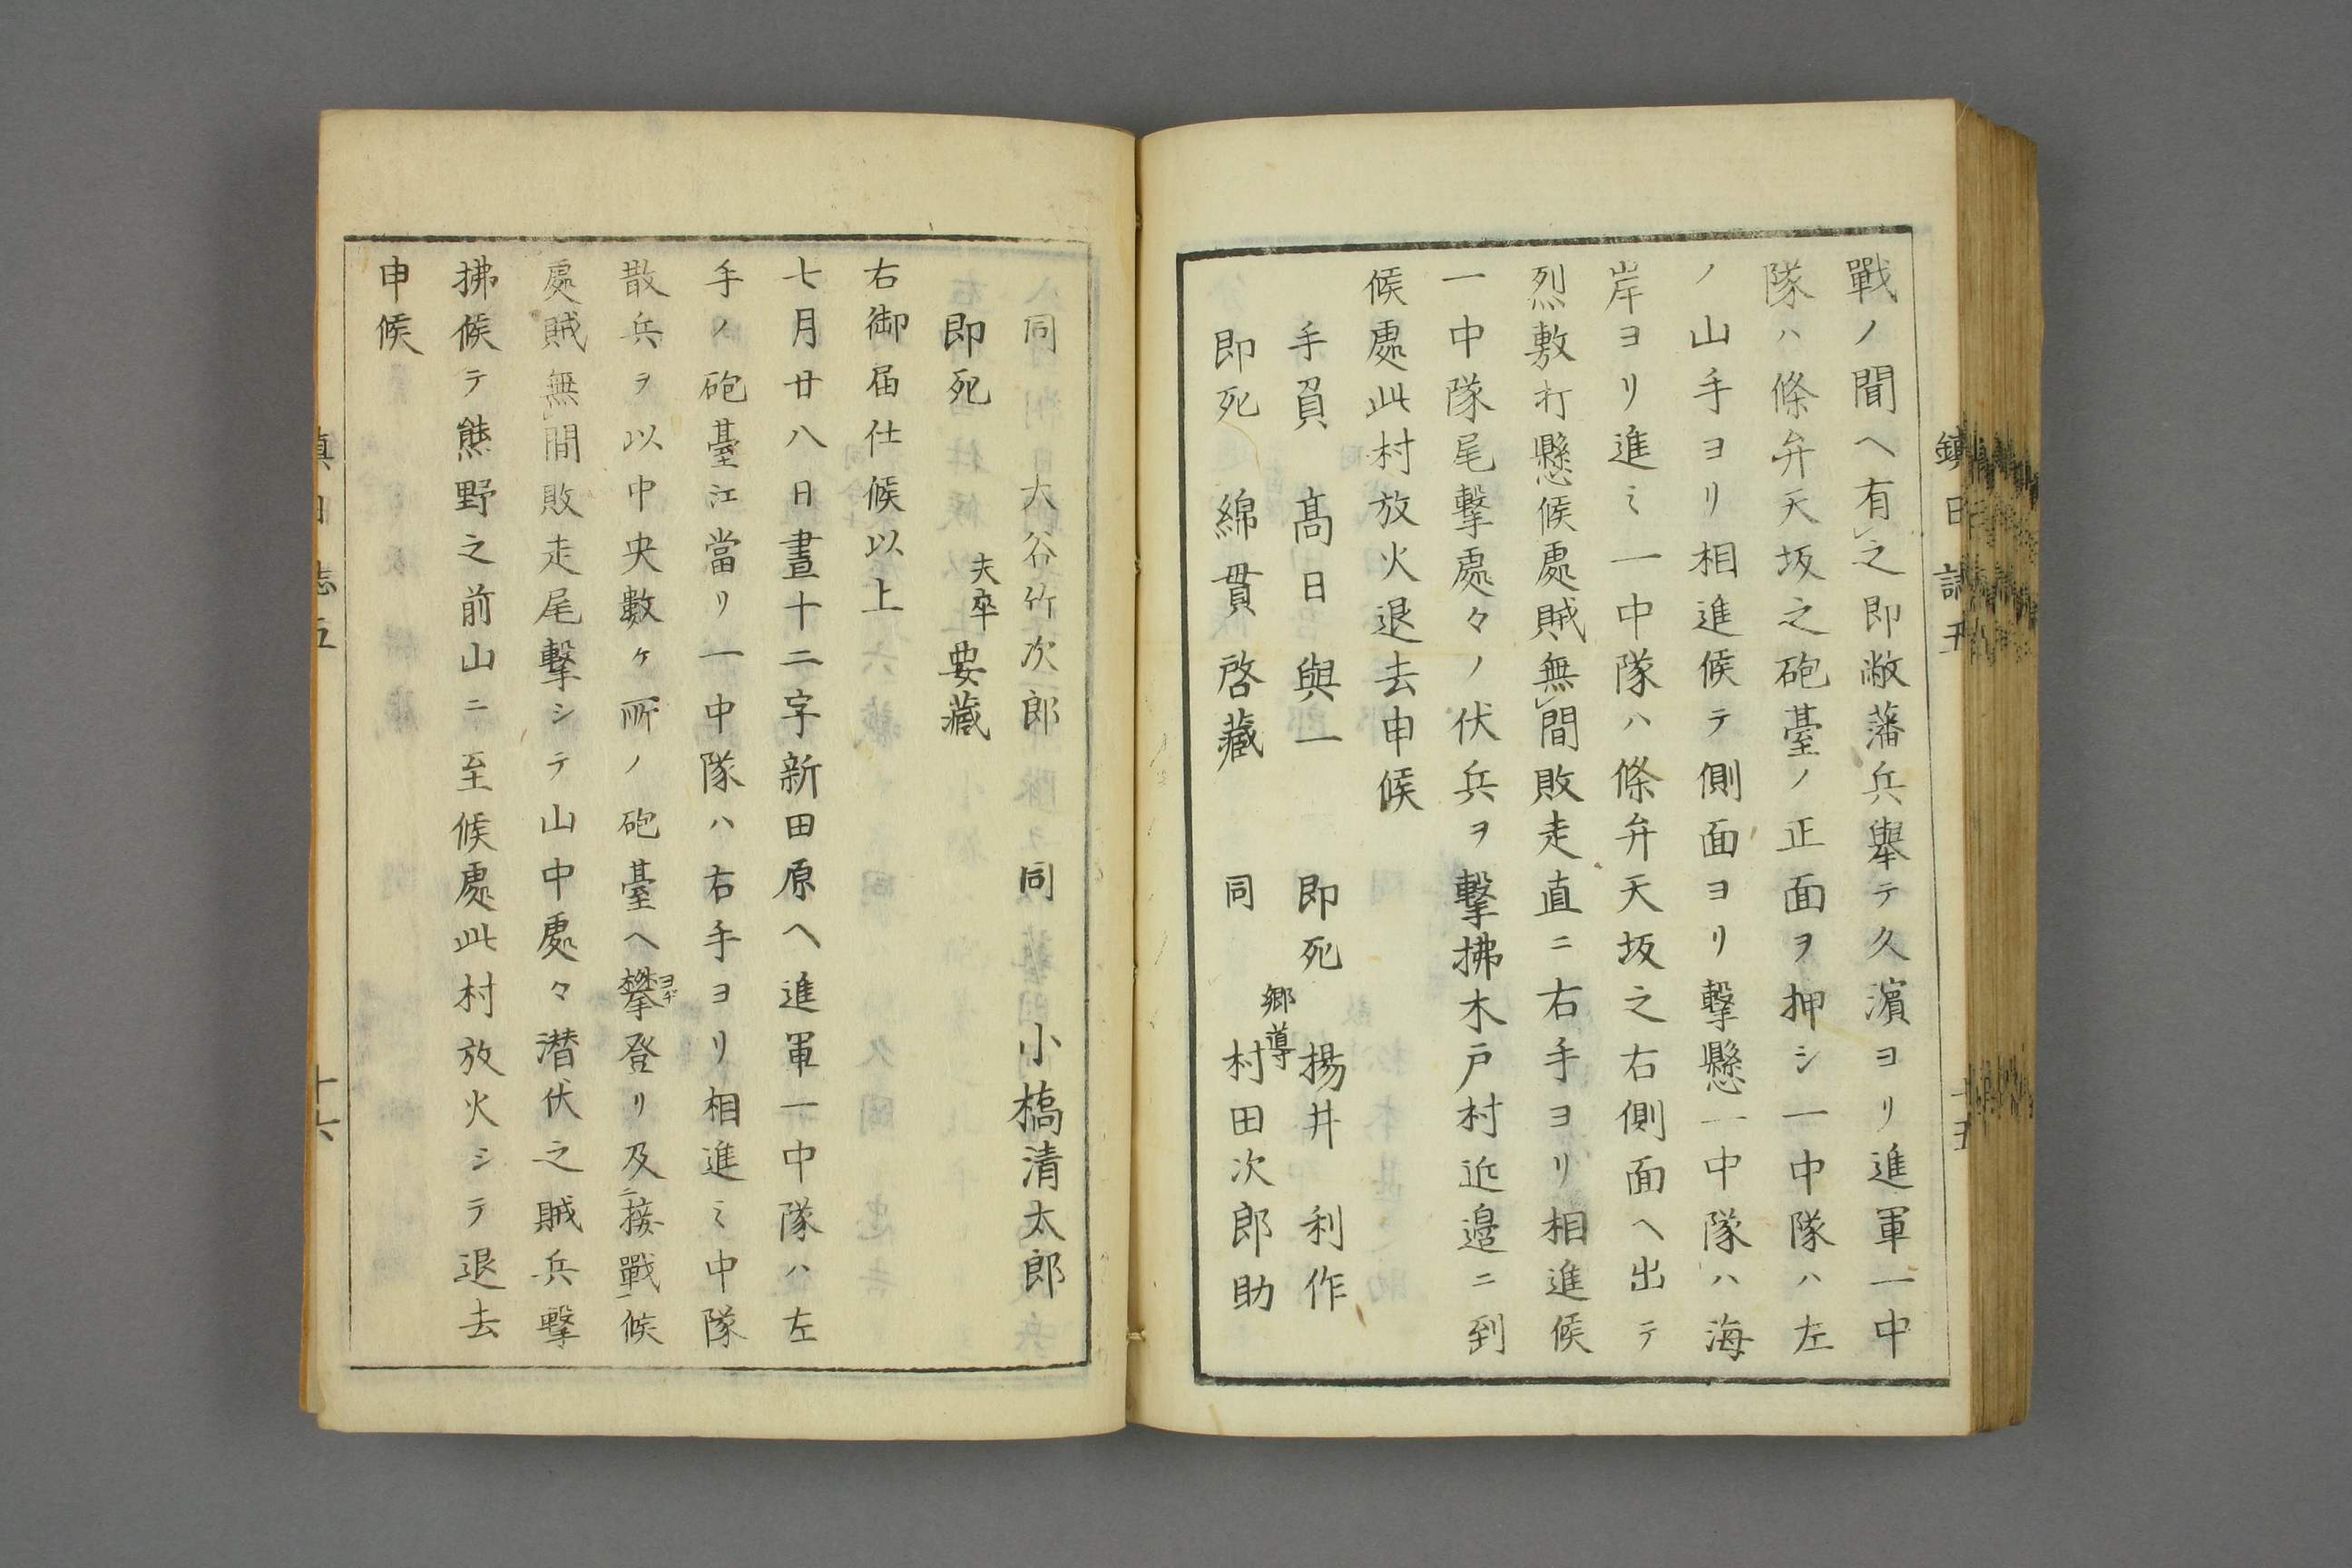 戰ノ聞ヘ有之即敝藩兵舉テ久濵ヨリ進軍一中
隊ハ條弁天坂之砲臺ノ正面ヲ押シ一中隊ハ左
ノ山手ヨリ相進候テ側面ヨリ撃懸一中隊ハ海
岸ヨリ進ミ一中隊ハ條弁天坂之右側面ヘ出テ
烈敷打懸候處賊無間敗走直ニ右手ヨリ相進候
一中隊尾撃處々ノ伏兵ヲ撃拂木戸村近邉ニ到
候處此村放火退去申候
手負 髙日與一 即死 揚井 利作
即死 綿貫 啓藏 同 郷導 村田次郎助
同 大谷竹次郎 同 小橋清太郎
即死 夫卒 要藏
右御届仕候以上
七月廿八日晝十二字新田原ヘ進軍一中隊ハ左
手ノ砲臺江當リ一中隊ハ右手ヨリ相進ミ中隊
散兵ヲ以中央數ヶ所ノ砲臺ヘ攀ヨヂ登リ及ニ接戰一候
處賊無間敗走尾撃シテ山中處々潜伏之賊兵撃
拂候テ熊野之前山ニ至候處此村放火シテ退去
申候
鎮日誌五
十五
鎮日誌五
十六